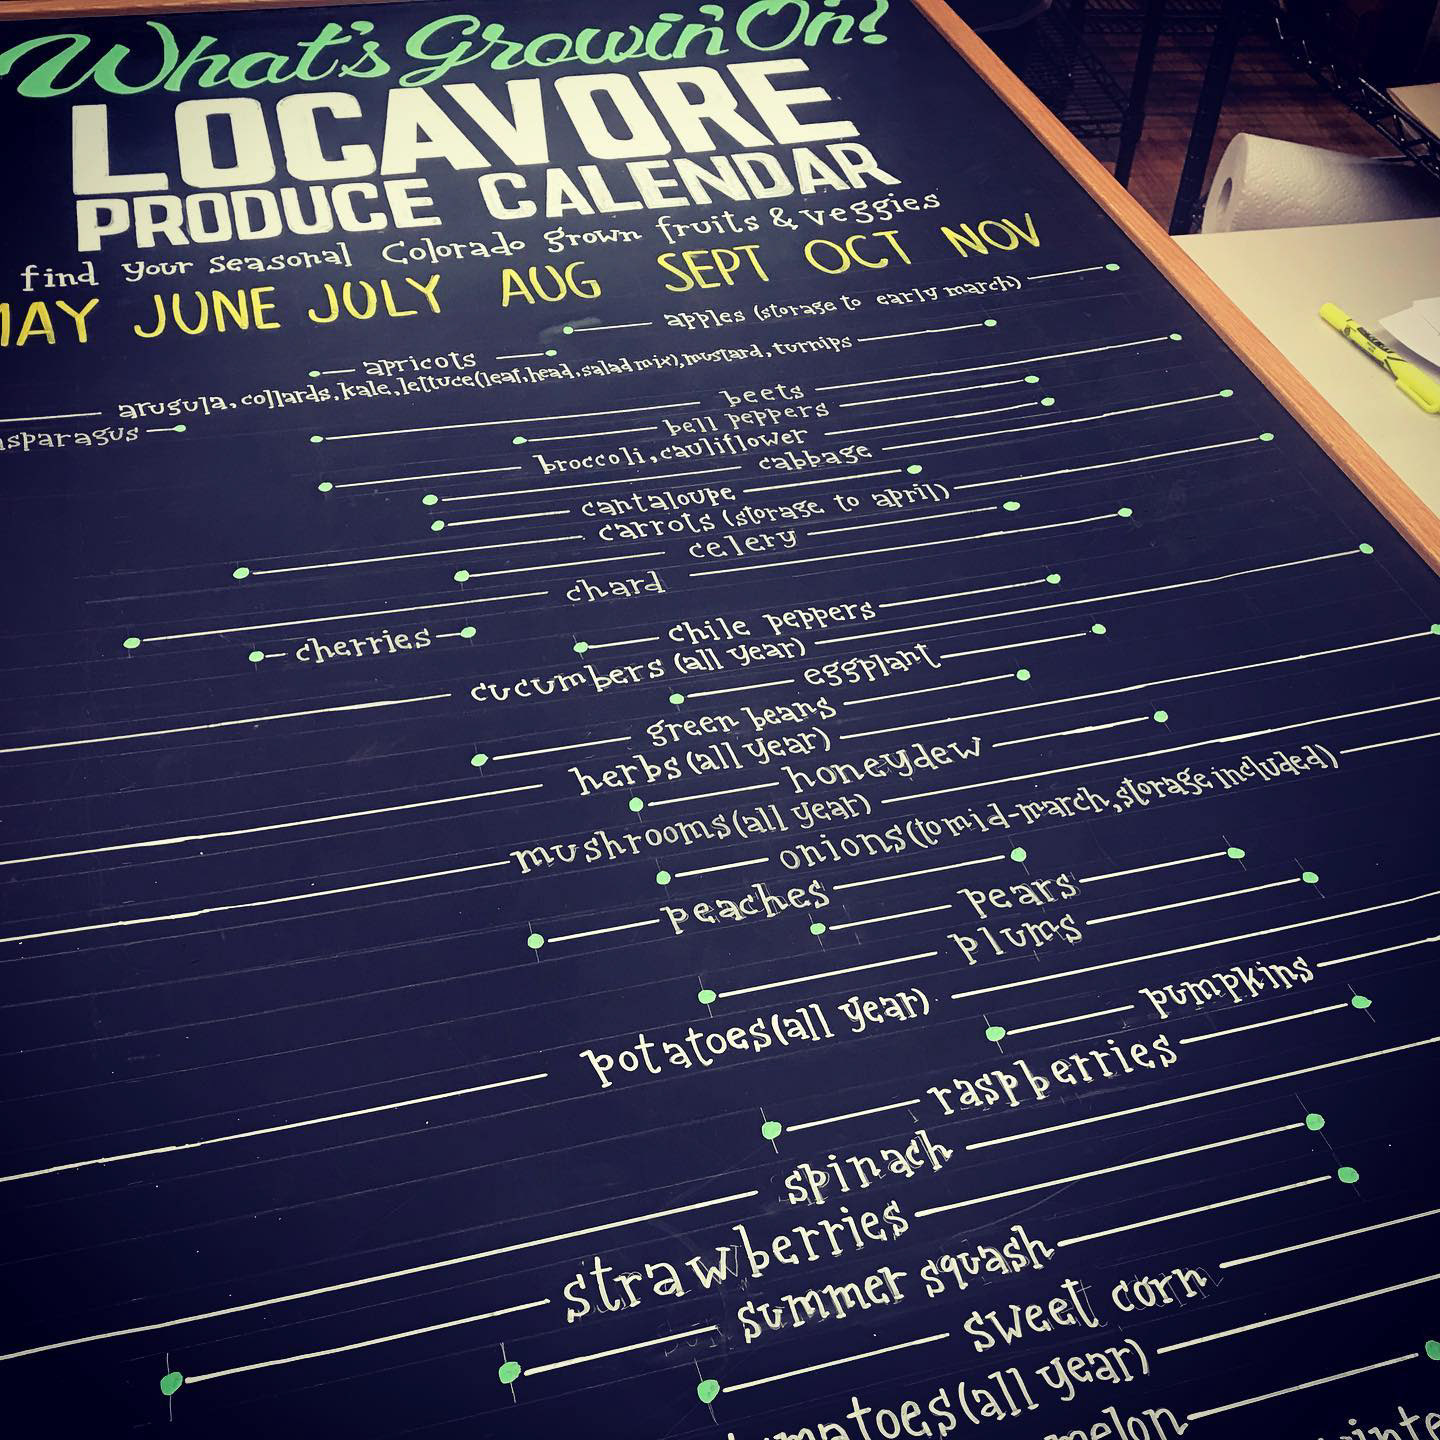 What's Growin' On?
LOCAVORE
PRODUCE CALENDAR
find your seasonal Colorado grown fruits & veggies
MAY JUNE JULY AUG SEPT OCT NOV
apples (storage to early march)
apricots
arugula, collards, kale, lettuce (leaf, head, salad mix), mustard, turnips
asparagus
beets
bell peppers
broccoli, cauliflower
cabbage
cantaloupe
carrots (storage to april)
celery
chard
cherries
chile peppers
cucumbers (all year)
eggplant
green beans
herbs (all year)
honeydew
mushrooms (all year)
onions (to mid-march, storage included)
peaches
pears
plums
potatoes (all year)
pumpkins
raspberries
spinach
strawberries
summer squash
sweet corn
tomatoes (all year)
melon